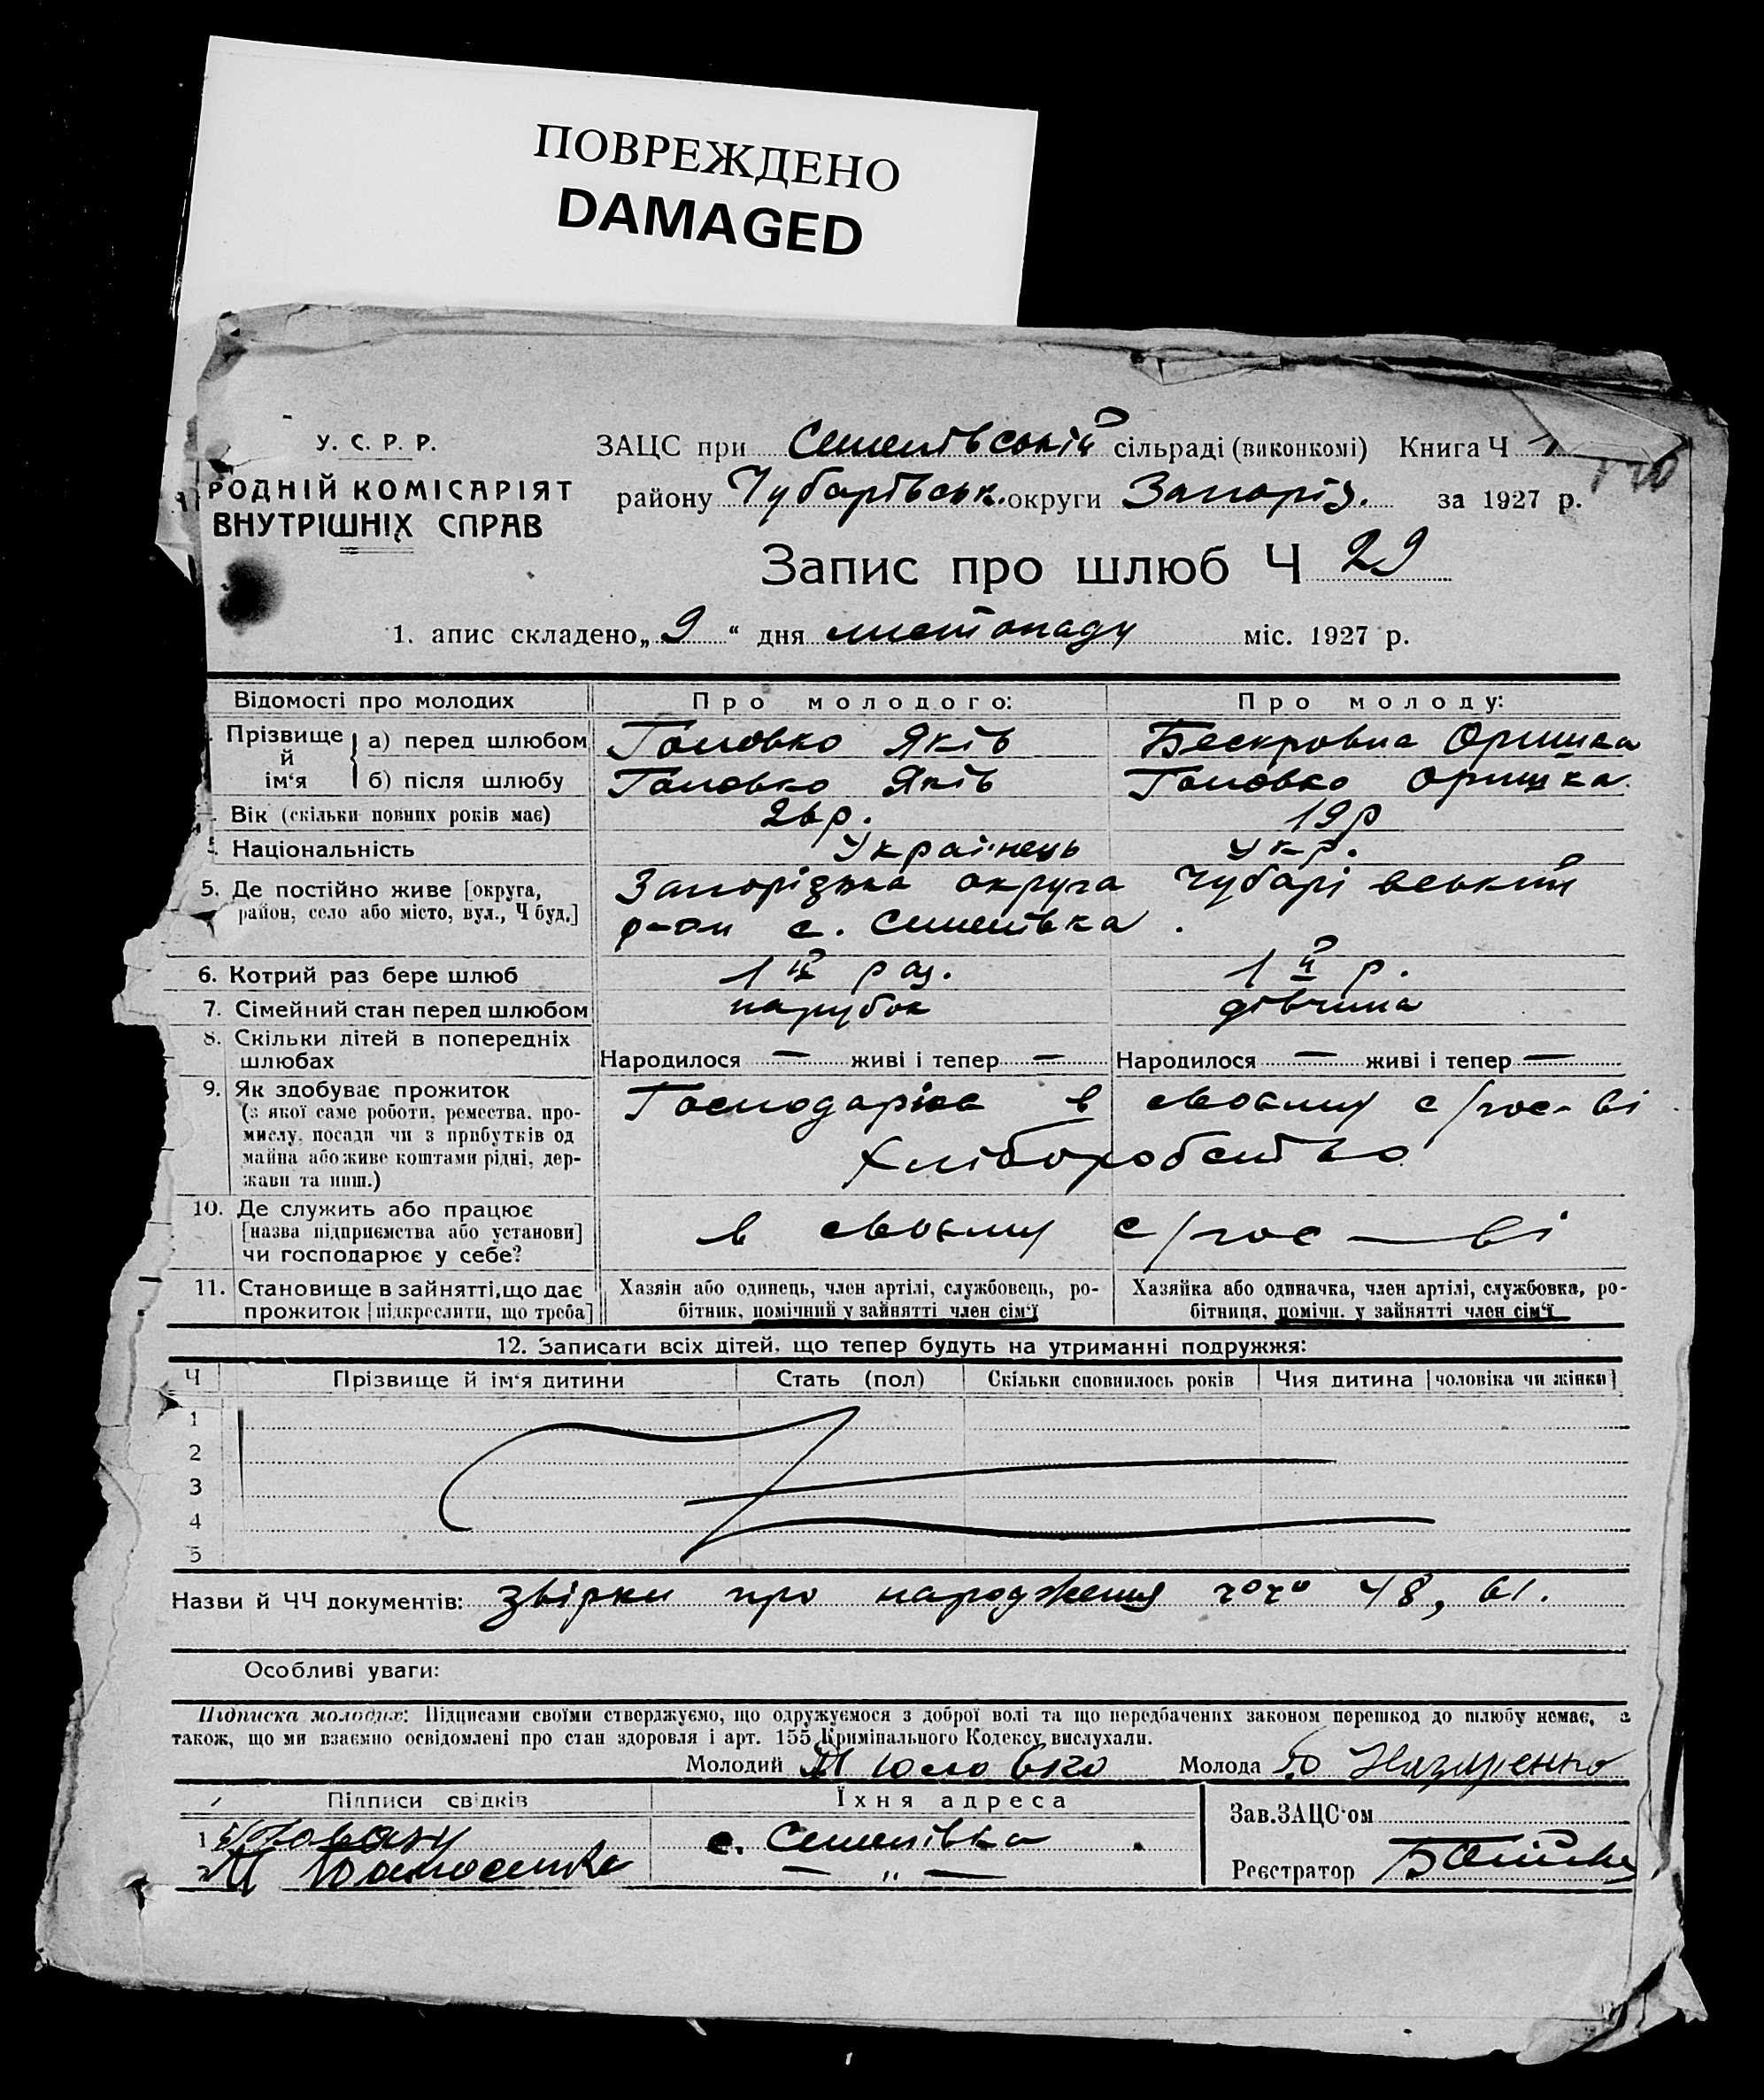 ПОВРЕЖДЕНО
DAMAGED
У. С. Р. Р.
РОДНІЙ КОМІСАРІЯТ
ВНУТРІШНІХ СПРАВ
ЗАЦС при Семенівській сільраді (виконкомі) Книга Ч 1
району Чубарівськ. округи Запоріз. за 1927 р.
Запис про шлюб Ч 29
1. апис складено „ 9 “ дня листопаду міс. 1927 р.
Відомості про молодих Про молодого: Про молоду:
Прізвище й ім‘я а) перед шлюбом Головко Яків Бескровна Оришка
б) після шлюбу Головко Яків Головко Оришка
Вік (скільки повних років має) 19 р
Національність Українець Укр.
5. Де постійно живе [округа, район, село або місто, вул., Ч буд.] Запорізька округа Чубарівський
р-он с. Семенівка.
6. Котрий раз бере шлюб 1й раз. 1й р.
7. Сімейний стан перед шлюбом парубок дівчина
8. Скільки дітей в попередніх шлюбах Народилося — живі і тепер — Народилося — живі і тепер —
9. Як здобуває прожиток
(з якої саме роботи, ремества, про-
мислу, посади чи з прибутків од
майна або живе коштами рідні, дер-
жави та инш.)
Господарює в своєму с/гос-ві
Хліборобство
10. Де служить або працює
[назва підприємства або установи]
чи господарює у себе?
в своєму с/гос—ві
11. Становище в зайнятті, що дає
прожиток [підкреслити, що треба]
Хазяїн або одинець, член артілі, службовець, ро-
бітник, помічний у зайнятті член сім‘ї
Хазяйка або одиначка, член артілі, службовка, ро-
бітниця, помічн. у зайнятті член сім‘ї
12. Записати всіх дітей, що тепер будуть на утриманні подружжя:
Ч Прізвище й ім‘я дитини Стать (пол) Скільки сповнилось років Чия дитина [чоловіка чи жінки]
1
2
3
4
5
Назви й ЧЧ документів: звірки про народження 48, 61.
Особливі уваги:
Підписка молодих: Підписами своїми стверджуємо, що одружуємося з доброї волі та що передбачених законом перешкод до шлюбу немає, а
також, що ми взаємно освідомлені про стан здоровля і арт. 155 Кримінального Кодексу вислухали.
Молодий Молода Назаренко
Підписи свідків Їхня адреса Зав. ЗАЦС‘ом
1 с. Семенівка
2 — „ —
Реєстратор